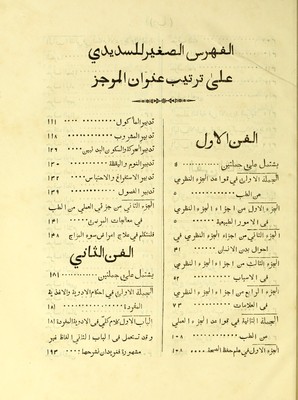 الفهرس الصغير للسديدي
على ترتيب عنوان الموجز
الفن الاول
يشتمل على جملتين ٥
الجملة الاولى في قواعد الجزء النظري
من الطب ٥
الجزء الاول من اجزاء الجزء النظري
في الامور الطبيعية ٥
الجزء الثاني من اجزاء الجزء النظري في
احوال بدن الانسان ٤١
الجزء الثالث من اجزاء الجزء النظري
في الاسباب ٥٢
الجزء الرابع من اجزاء الجزء النظري
في العلامات ٧٣
الجملة الثانية في قواعد الجزء العملي
من الطب ١٠٨
الجزء الاول في علم حفظ الصحة ١٠٨
تدبير المأكول ١١١
تدبير المشروب ١١٨
تدبير الحركة والسكون البدنيين ١٢٩
تدبير النوم واليقظة ١٣٠
تدبير الاستفراغ والاحتباس ١٣٢
تدبير الفصول ١٣٩
الجزء الثاني من جزئي العملي من الطب
في معالجات المرضى ١٤١
فلنتكلم في علاج امراض سوء المزاج ١٤٨
الفن الثاني
يشتمل على جملتين ١٨١
الجملة الاولى في احكام الادوية والاغذية
المفردة ١٨١
الباب الاول كلام كلي في الادوية المفردة ١٨١
وقد تستعمل في الباب الثاني الفاظ غير
مشهورة فنريد ان نشرحها ١٩٣